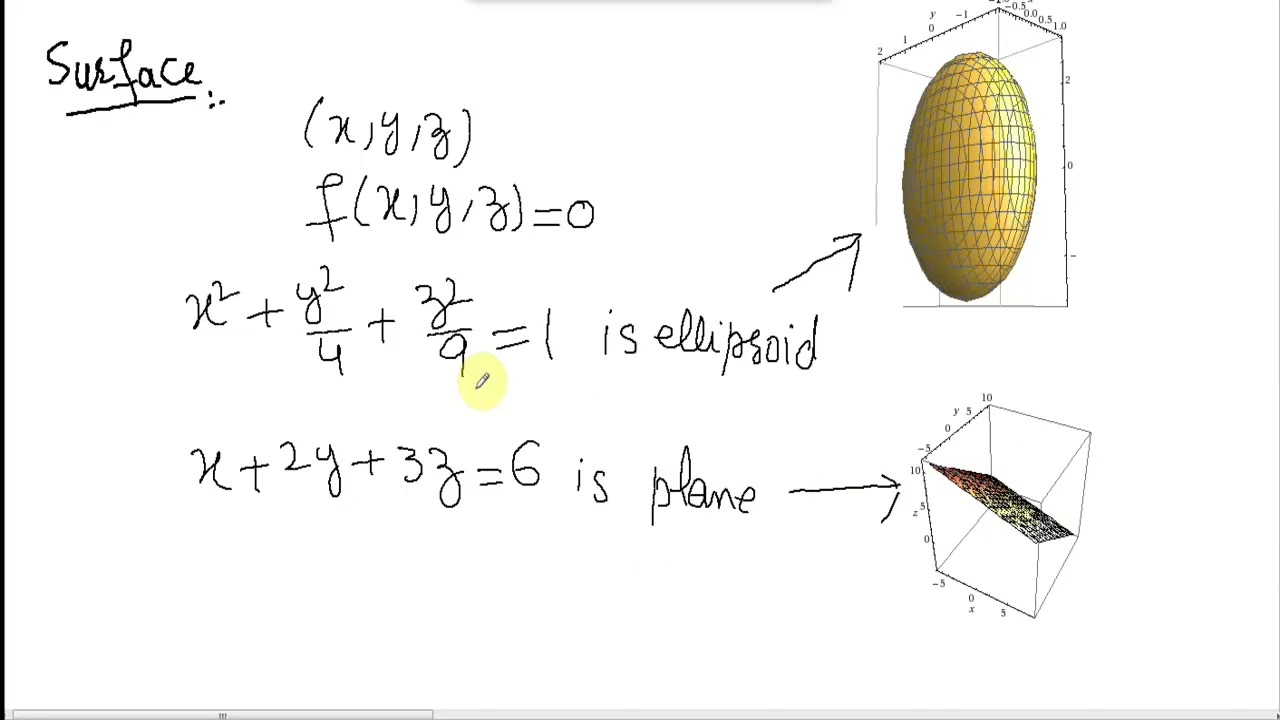 Surface :.
(x, y, z)
f(x, y, z) = 0
x² + y²/4 + z²/9 = 1 is ellipsoid
x + 2y + 3z = 6 is plane
y
-1
-0.5
0.0
0.5
1.0
0
1
2
2
0
10
y
5
0
-5
10
5
z
0
-5
0
x
5